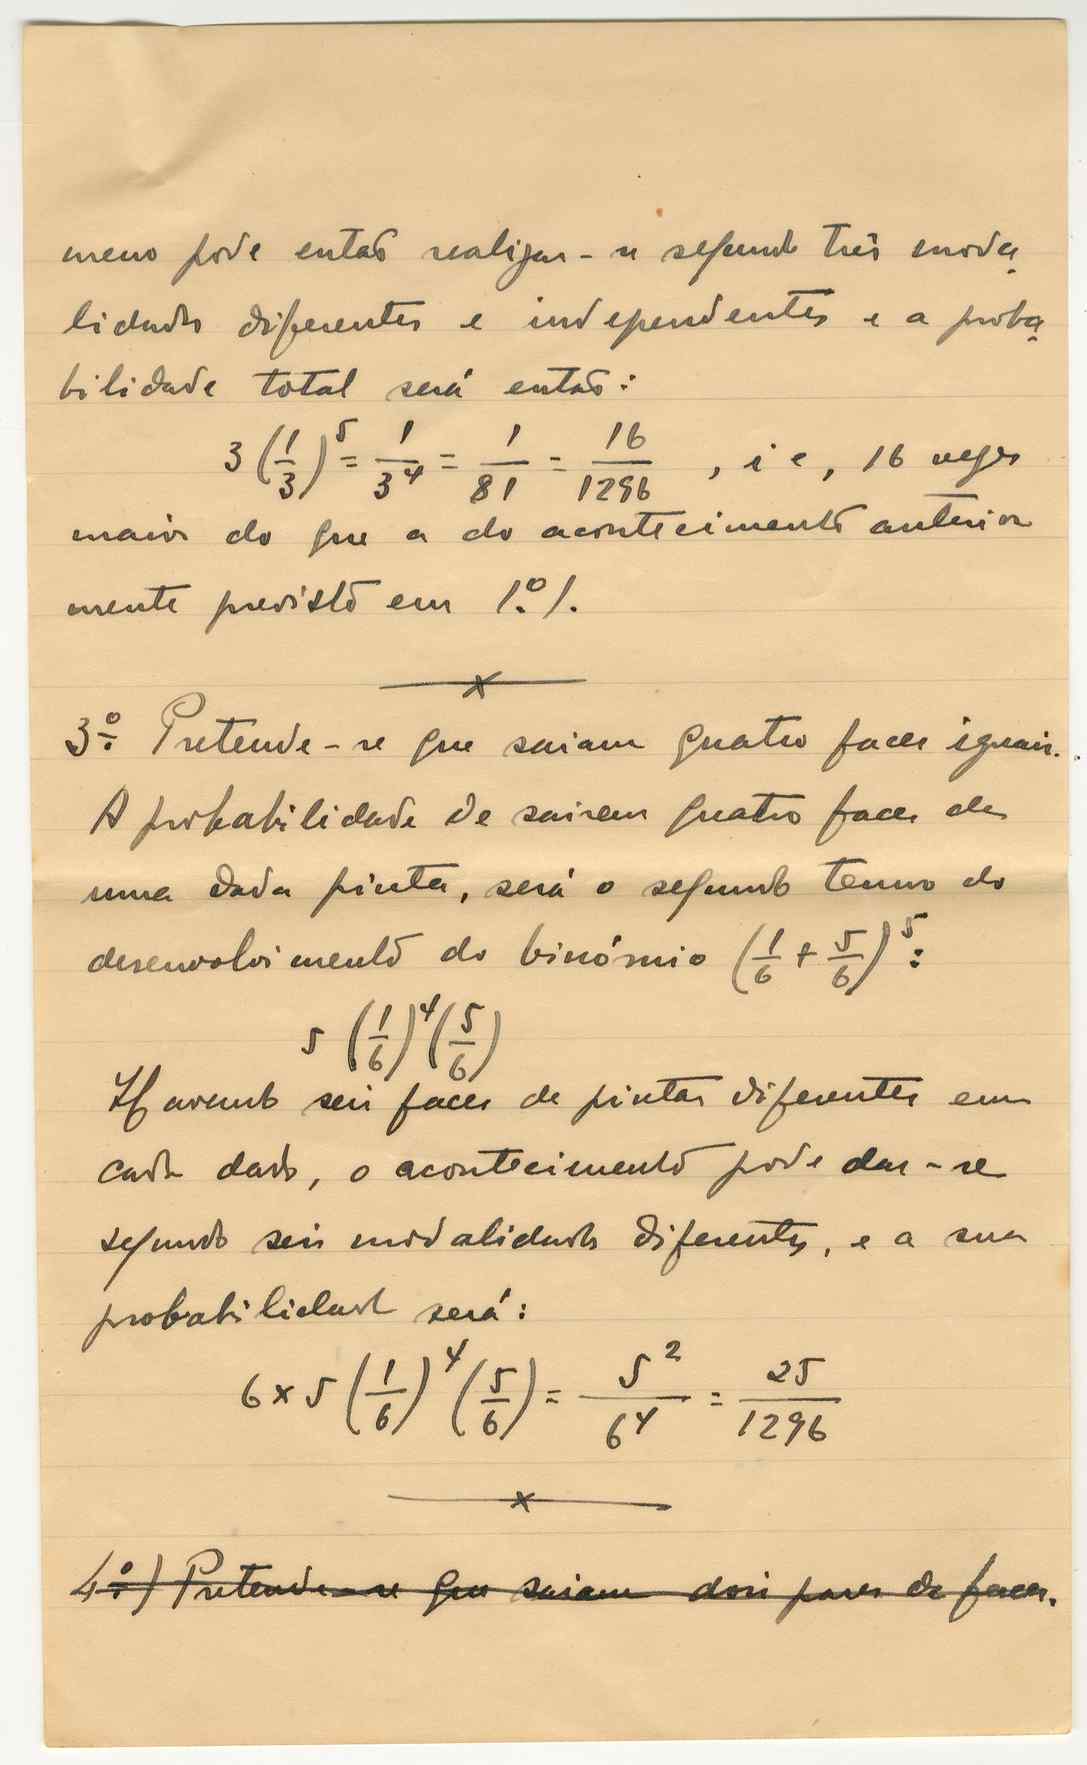 meno pode então realizar-se segundo três moda
lidades diferentes e independentes e a proba
bilidade total será então:
3 (1/3)^5 = 1/3^4 = 1/81 = 16/1296 , i e, 16 vezes
maior do que a do acontecimento anterior
mente previsto em 1.º).
x
3.º Pretende-se que saiam quatro faces iguais.
A probabilidade de sairem quatro faces de
uma dada pinta, será o segundo termo do
desenvolvimento do binómio (1/6 + 5/6)^5 :
5 (1/6)^4 (5/6)
Havendo seis faces de pintas diferentes em
cada dado, o acontecimento pode dar-se
segundo seis modalidades diferentes, e a sua
probabilidade será:
6 x 5 (1/6)^4 (5/6) = 5^2/6^4 = 25/1296
x
4.º) Pretende-se que saiam dois pares de faces.